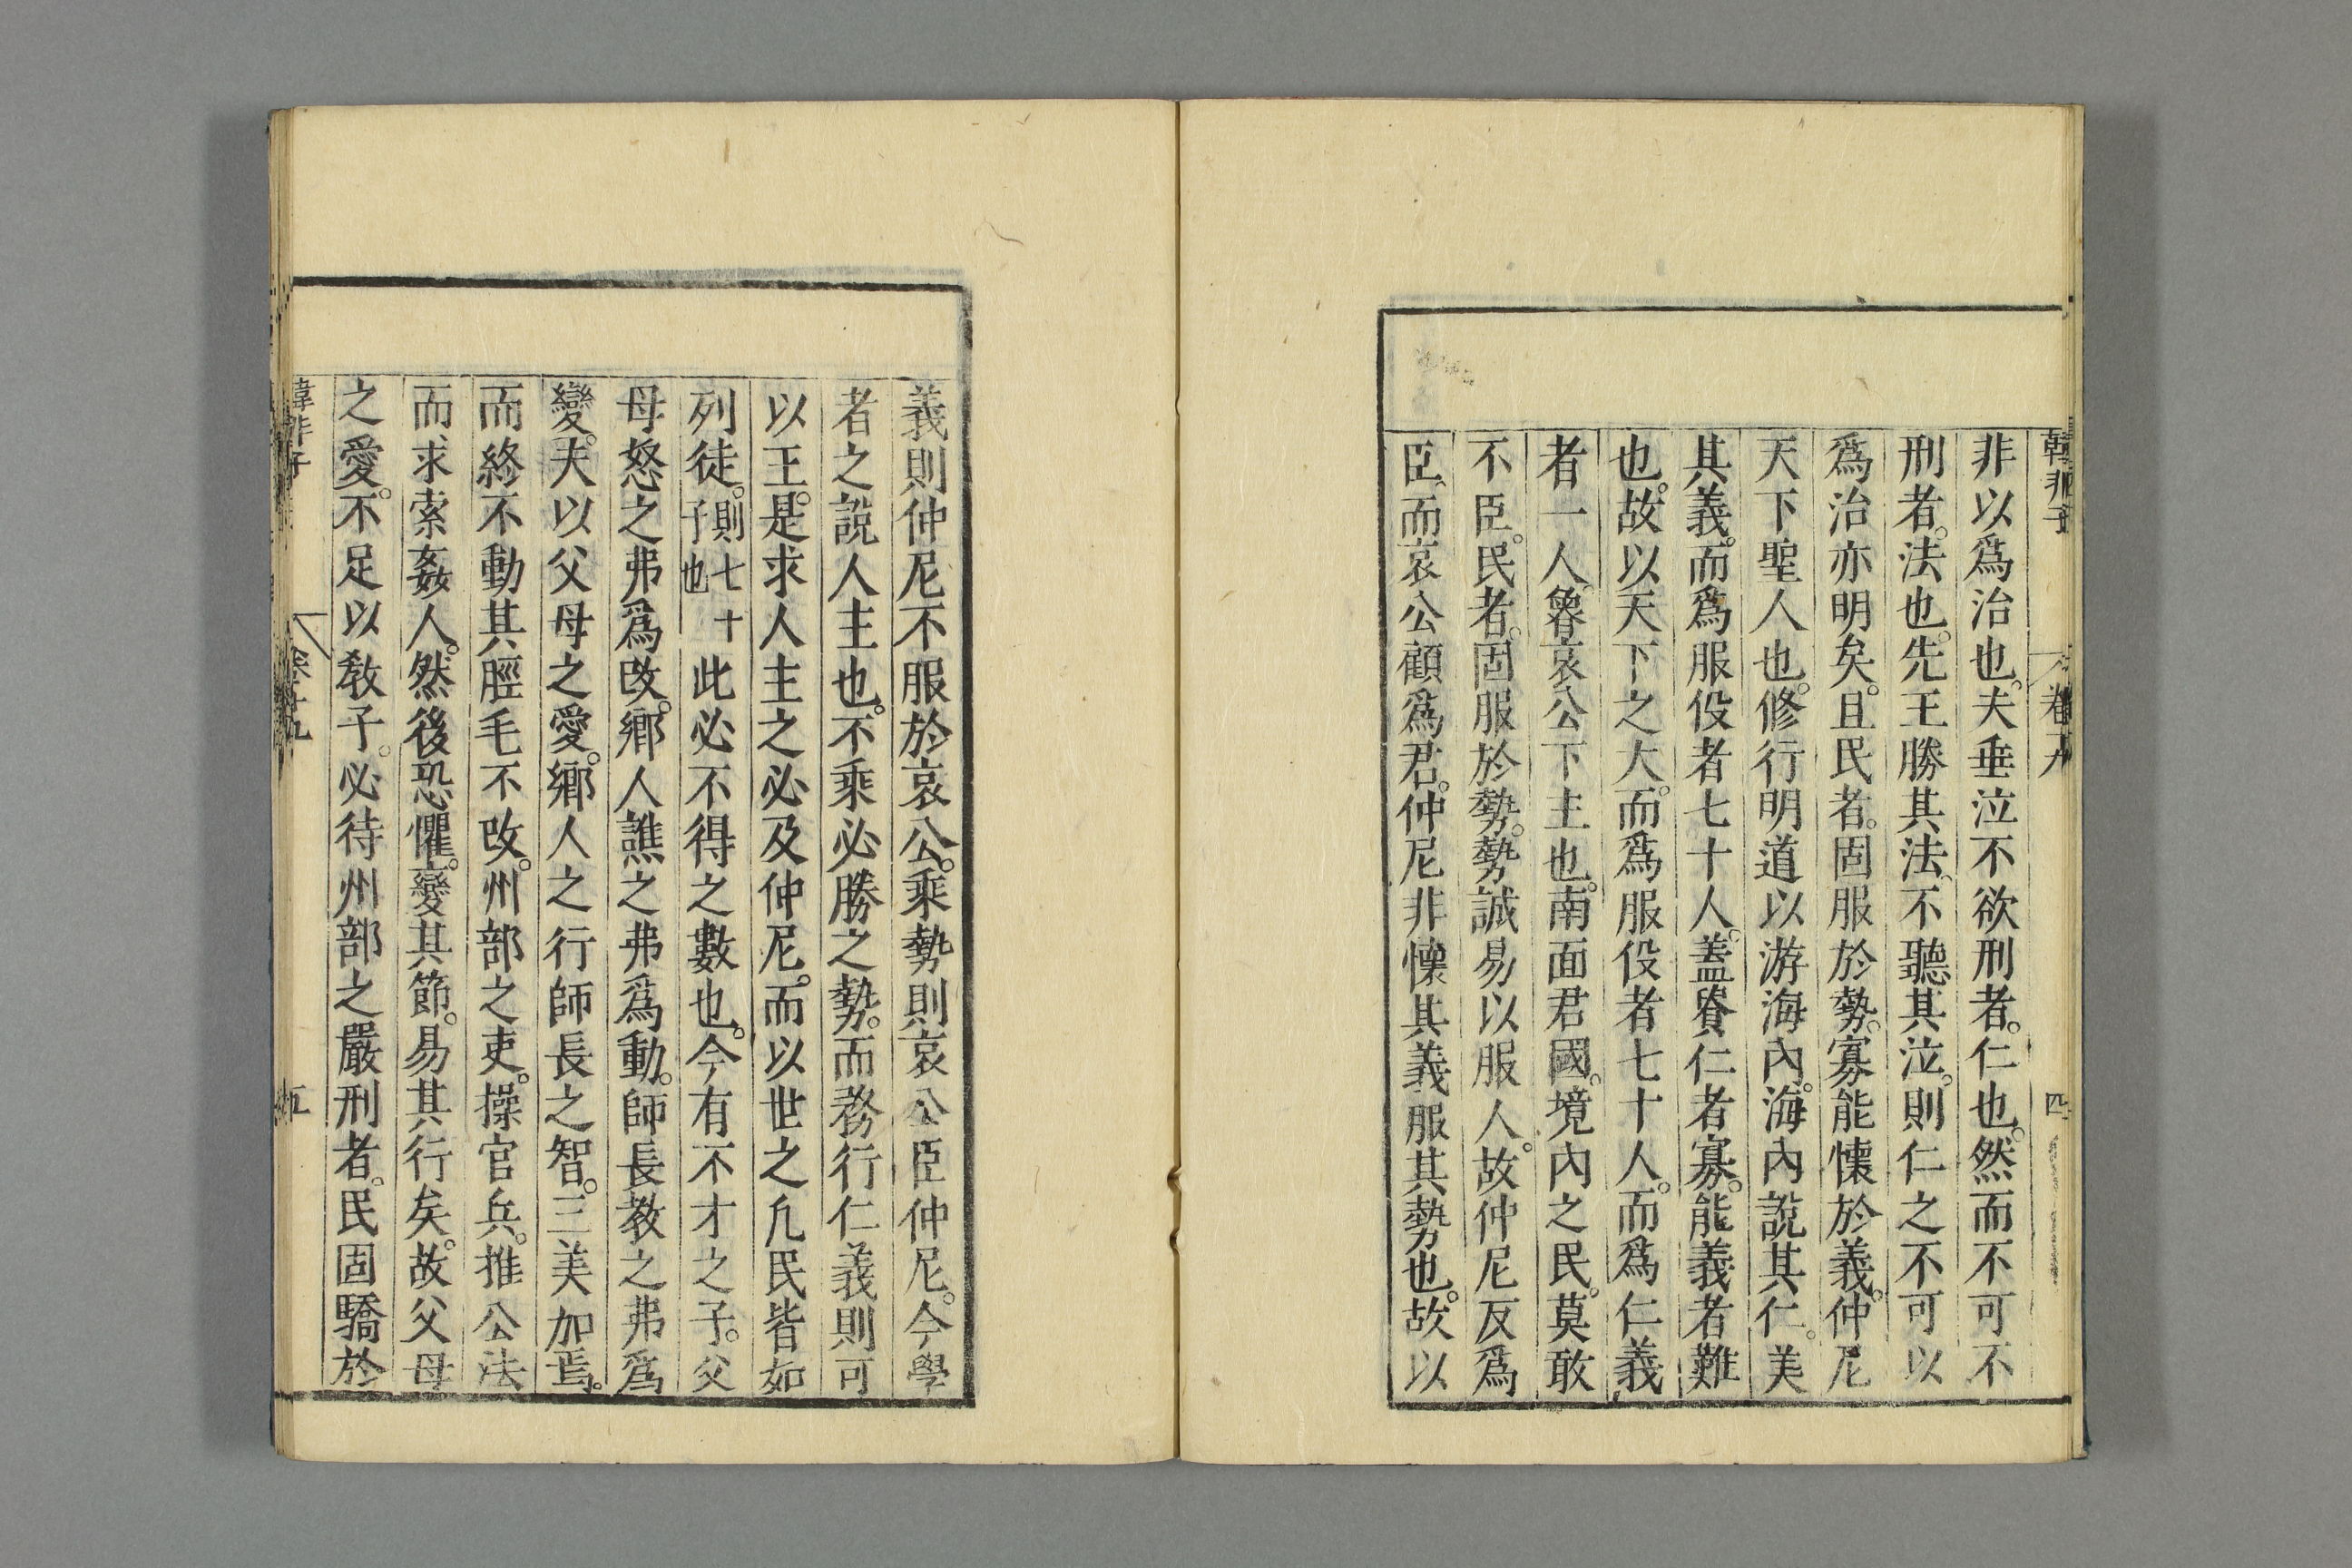 韓非子 卷十九 四
非以爲治也。夫垂泣不欲刑者。仁也。然而不可不
刑者。法也。先王勝其法、不聽其泣。則仁之不可以
爲治亦明矣。且民者。固服於勢。寡能懷於義。仲尼
天下聖人也。修行明道以游海內。海內說其仁。美
其義。而爲服役者七十人。蓋貴仁者寡。能義者難
也。故以天下之大。而爲服役者七十人。而爲仁義
者一人。魯哀公下主也。南面君國。境內之民。莫敢
不臣。民者。固服於勢。勢誠易以服人。故仲尼反爲
臣、而哀公顧爲君。仲尼非懷其義服其勢也。故以
義則仲尼不服於哀公。乘勢則哀公臣仲尼。今學
者之說人主也。不乘必勝之勢。而務行仁義則可
以王。是求人主之必及仲尼。而以世之凡民皆如
列徒。則七十子也此必不得之數也。今有不才之子。父
母怒之弗爲改。鄉人譙之弗爲動。師長教之弗爲
變。夫以父母之愛。鄉人之行師長之智。三美加焉。
而終不動其脛毛不改。州部之吏。操官兵。推公法
而求索姦人。然後恐懼。變其節。易其行矣。故父母
之愛。不足以敎子。必待州部之嚴刑者。民固驕於
韓非子 卷十九 五